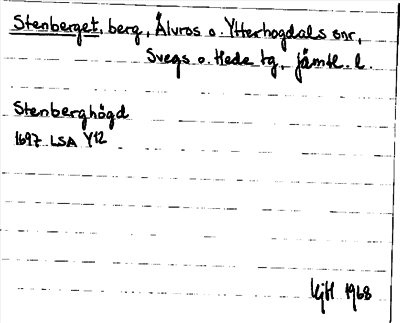 Stenberget, berg, Älvros o. Ytterhogdals snr,
Svegs o. Hede tg, jämtl. l.
Stenberghögd
1697 LSA Y12
KjH 1968